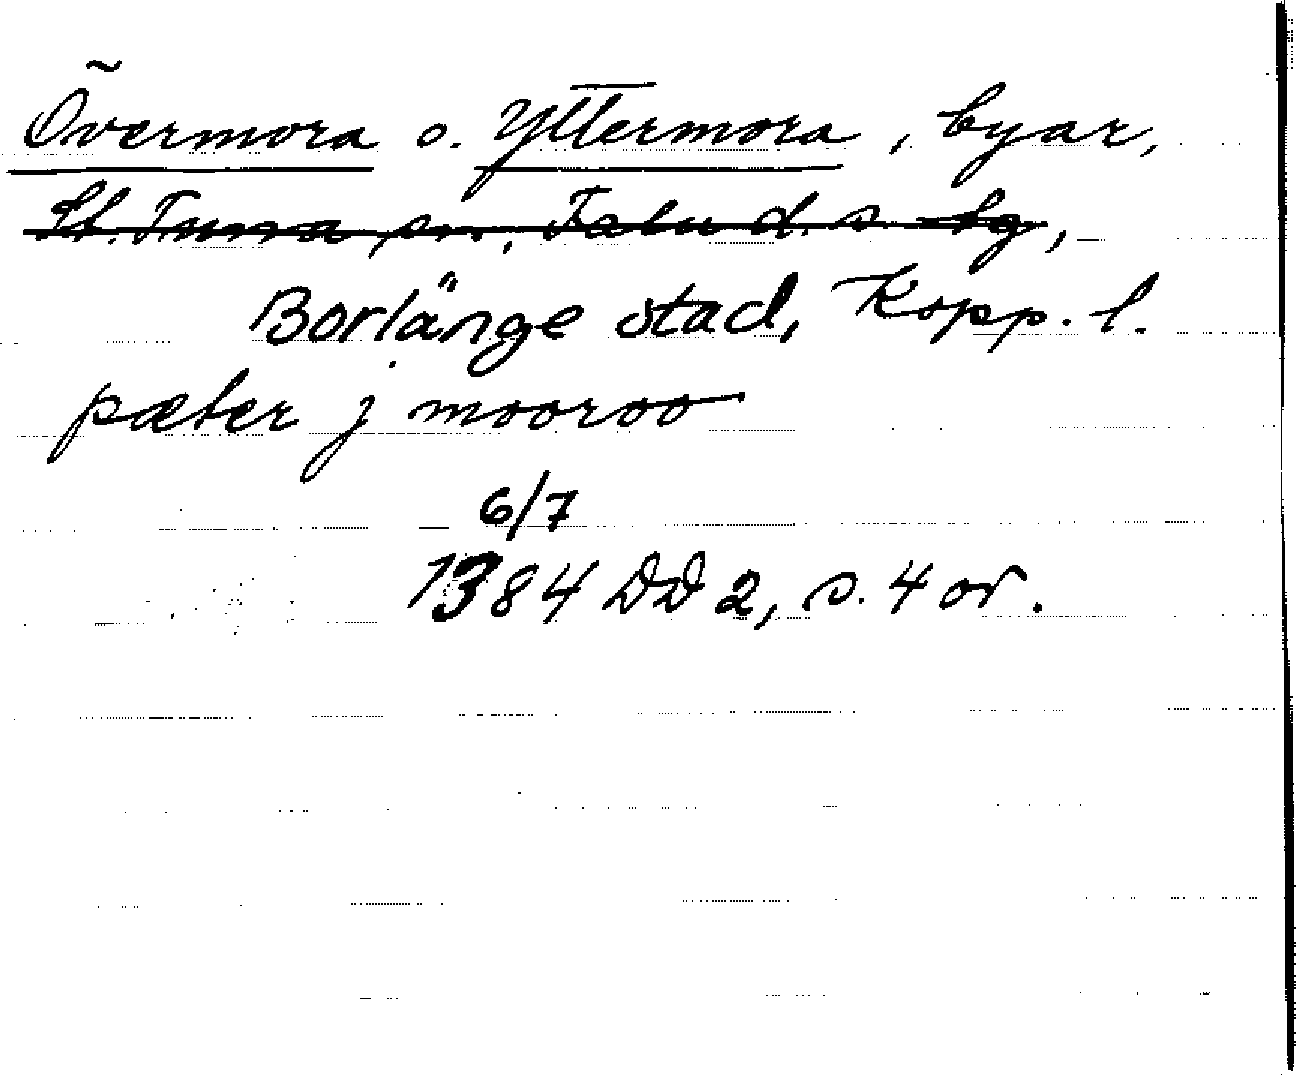 Övermora o. Yttermora, byar,
St. Tuna sn, Falu d. s. tg,
Borlänge stad, Kopp. l.
pæter j mooroo
6/7
1384 DD 2, s. 4 or.